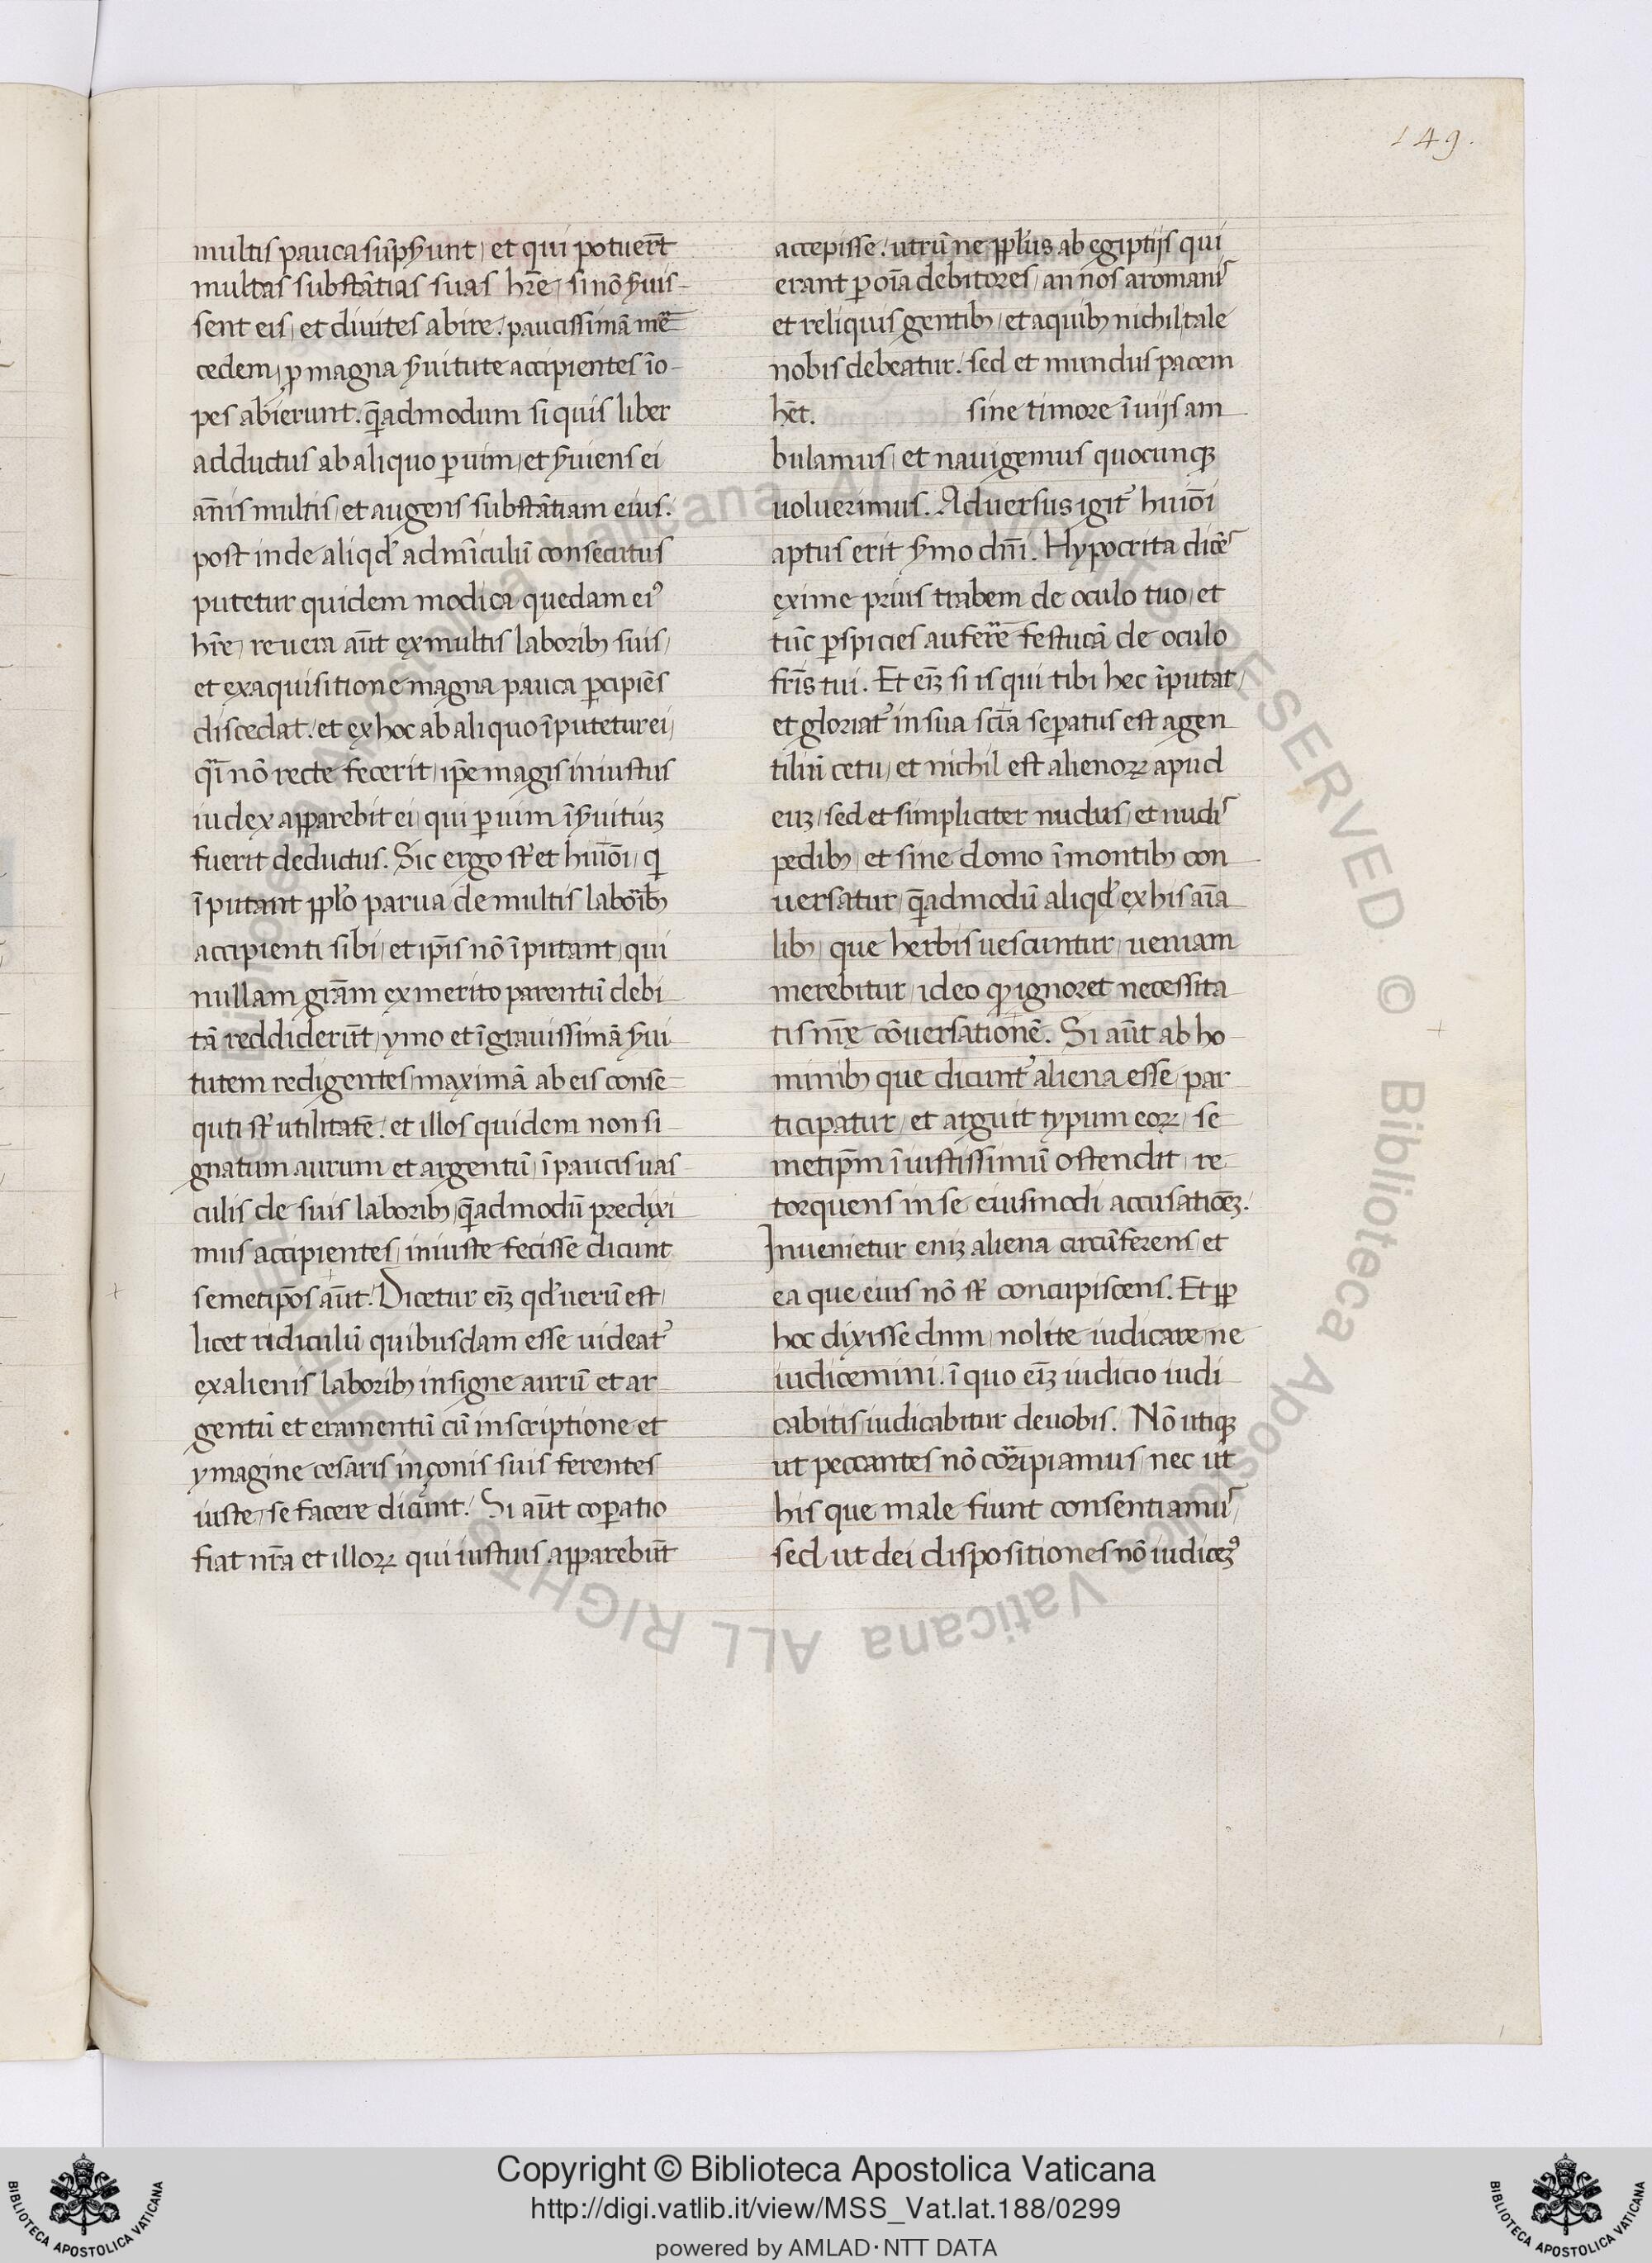 149.
multis pauca sūpẜunt, et qui potuer̄t
multas substātias suas hr̄e, si nō ẜuis-
sent eis, et diuites abire, paucissimā mer̄-
cedem, ꝓ magna ẜuitute accipientes īo-
pes abierunt. q̄admodum si quis liber
adductus ab aliquo ꝑ uim, et ẜuiens ei
ān̄is multis, et augens substātiam eius,
post inde aliqd̓ admīculū consecutus
putetur quidem modica quedam ei᾽
hr̄e, reuera aūt ex multis laborib; suis,
et exaquisitione magna pauca ꝑcipiēs
discedat, et ex hoc ab aliquo īputetur ei,
qi̅ nō recte fecerit, ip̄e magis iniustus
iudex apparebit ei, qui ꝑ uim ī ẜuitiuꝫ
fuerit deductus. Sic ergo st̓ et hui̅oi̅, qi
īputant pp̄lo parua de multis laborib;
accipienti sibi, et ip̄is nō īputant, qui
nullam grām ex merito parentū debi-
tā reddiderūt, ymo et ī grauissimā ẜui
tutem redigentes, maximā ab eis conse-
quti st̓ utilitatē. et illos quidem non si-
gnatum aurum et argentū, ī paucis uas-
culis de suis laborib;, q̄admodū predixi
mus accipientes, iniuste fecisse dicunt
semetip̄os aūt. Dicetur eīꝫ qd̓ uerū est,
licet ridiculū quibusdam esse uideat᾽
ex alienis laborib; insigne aurū et ar-
gentū et eramentū cū inscriptione et
ymagine cesaris in çonis suis ferentes
iuste, se facere dicunt. Si aūt cōꝑatio
fiat nr̄a et illoꝝ qui iustius apparebūt
accepisse, utrū ne pp̄lus ab egiptijs qui
erant ꝑ oīa debitores, an nos a romanis
et reliquis gentib;, et a quib; nichil tale
nobis debeatur. sed et mundus pacem
hēt. sine timore ī uijs am
bulamus, et nauigemus quocunqꝫ
uoluerimus. Aduersus igit᾽ hui̅oi̅
aptus erit ẜmo dn̄i. Hypocrita dicēs
exime prius trabem de oculo tuo, et
tūc ꝑspicies auferr̄e festucā de oculo
fr̄is tui. Et eīꝫ si is qui tibi hec īputat,
et gloriat᾽ in sua scīa seꝑatus est a gen
tiliū cetu, et nichil est alienoꝝ apud
euꝫ, sed et simpliciter nudus, et nudis
pedib;, et sine domo ī montib; con
uersatur, q̄admodū aliqd̓ ex his aīa
lib;, que herbis uescuntur, ueniam
merebitur, ideo qꝫ ignoret necessita
tis nr̄ę cōuersationē. Si aūt ab ho-
minib; que dicunt᾽ aliena esse, par-
ticipatur, et arguit typum eoꝝ, se-
metip̄m īiustissimū ostendit, re-
torquens in se eiusmodi accusatiōeꝫ.
Inuenietur eniꝫ aliena circūferens, et
ea que eius nō st̓ concupiscens. Et pp
hoc dixisse dnm, nolite iudicare, ne
iudicemini. ī quo eīꝫ iudicio iudi-
cabitis iudicabitur de uobis. Nō utiqꝫ
ut peccantes nō corr̄ipiamus, nec ut
his que male fiunt consentiamus,
sed ut dei dispositiones nō iudiceꝫ᾽
Biblioteca Apostolica Vaticana ALL RIGHTS RESERVED © Biblioteca Apostolica Vaticana ALL RIGHTS RESERVED ©
Copyright © Biblioteca Apostolica Vaticana
http://digi.vatlib.it/view/MSS_Vat.lat.188/0299
powered by AMLAD·NTT DATA
BIBLIOTECA APOSTOLICA VATICANA
BIBLIOTECA APOSTOLICA VATICANA